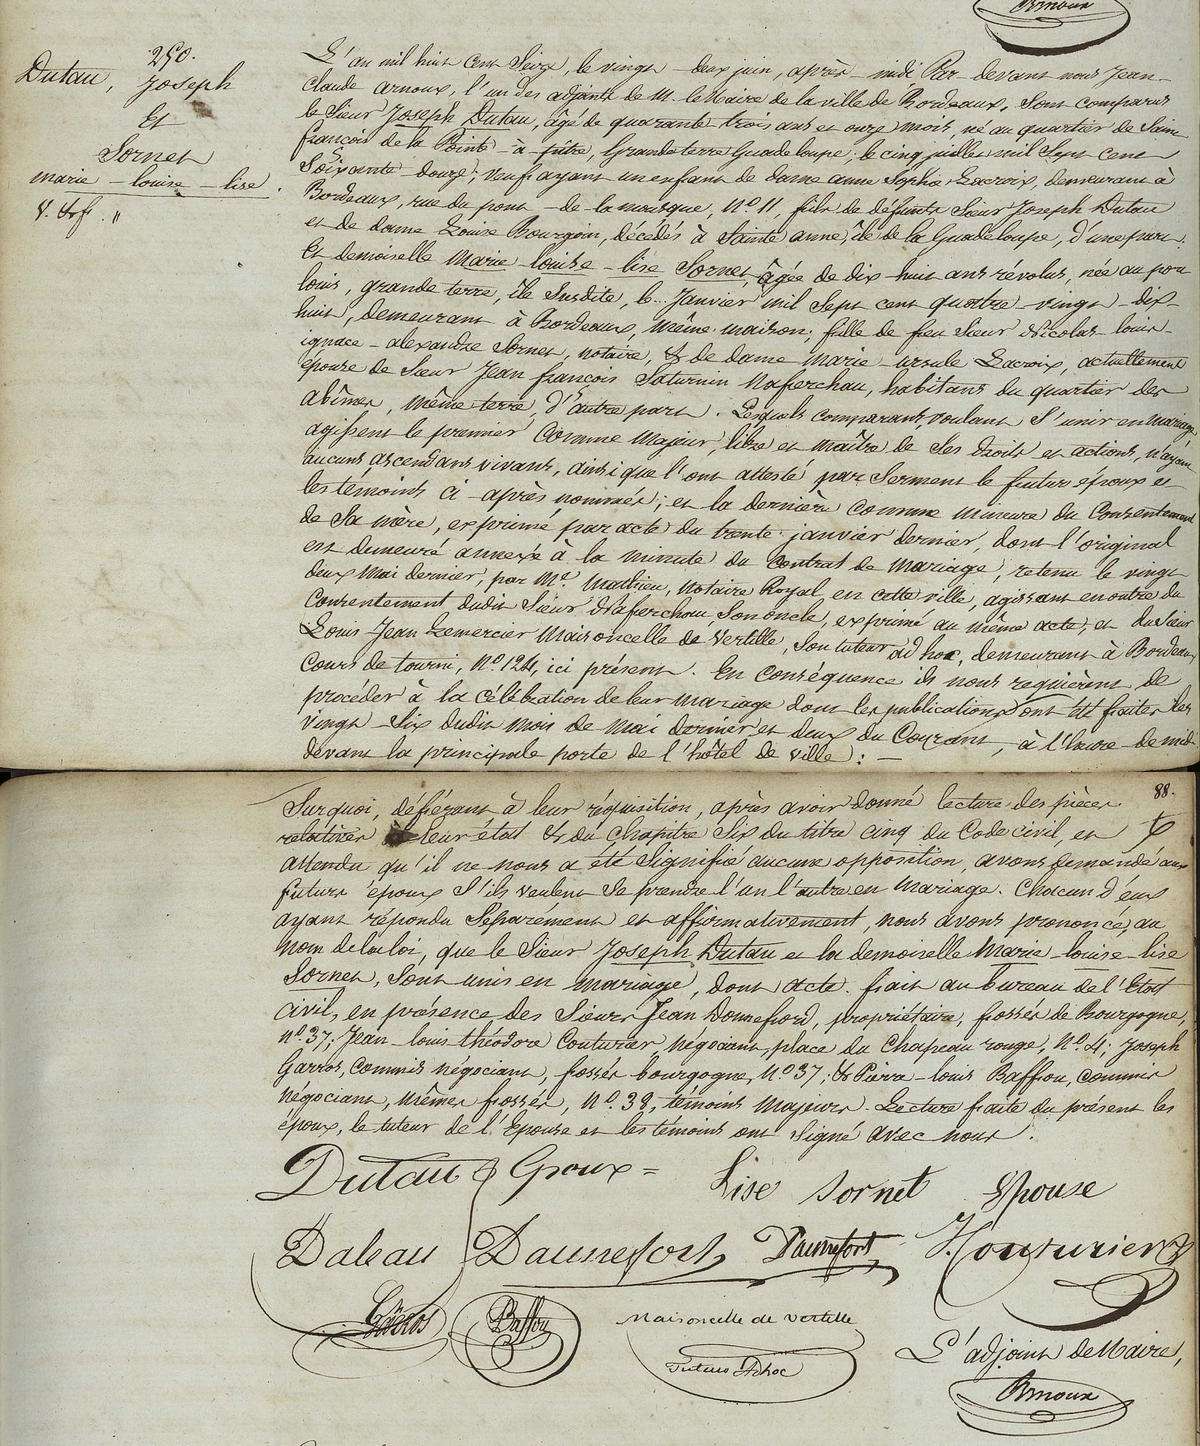 Arnoux
250.
Dutau, Joseph
Et
Sornet
marie - louise - lise
L'an mil huit cent Seize, le vingt - deux juin, après midi Par devant nous Jean-
claude arnoux, l'un des adjoints de M. le Maire de la ville de Bordeaux, Sont comparus
le Sieur Joseph Dutau, âgé de quarante trois ans et onze mois, né au quartier de Saint
françois de la Pointe - à - pitre, Grande terre Guadeloupe, le cinq juillet mil Sept cent
Soixante douze, veuf ayant un enfant de dame anne Sophie Lacroix, demeurant à
Bordeaux, rue du pont - de - la mousque, N.o 11, fils de défunts Sieur Joseph Dutau
et de dame Louise Bourgoin, décédés à Sainte anne, île de la Guadeloupe, d'une part.
Et demoiselle Marie - louise - lise Sornet, âgée de dix huit ans révolus, née au port
louis, grande terre, île Susdite, le .. Janvier mil Sept cent quatre - vingt - dix
huit, demeurant à Bordeaux, même maison, fille de feu Sieur Nicolas louis -
ignace - alexandre Sornet, notaire, & de dame Marie - ursule Lacroix, actuellement
épouse de Sieur Jean françois Saturnin Naferchau, habitans du quartier des
abîmes, même terre, d'autre part. Lesquels comparans, voulant S'unir en mariage
agissent le premier Comme Majeur, libre et maître de Ses droits et actions, n'ayant
aucuns ascendans vivans, ainsi que l'ont attesté par Serment le futur époux et
les temoins ci - après nommés; et la dernière comme mineure du Consentement
de Sa mère, exprimé par acte du trente janvier dernier, dont l'original
est demeuré annexé à la minute du Contrat de Mariage, retenu le vingt
deux Mai dernier, par M.e Mathieu, Notaire Royal, en cette ville, agissant en outre du
Consentement dudit Sieur Naferchau, Son oncle, exprimé au même acte; et du Sieur
Louis Jean Lemercier Maisoncelle de Vertille, Son tuteur ad hoc, demeurant à Bordeaux
Cours de tourni, N.o 124, ici présent. En conséquence ils nous requièrent de
procéder à la célébration de leur mariage dont les publications ont été faites les
Vingt Six dudit mois de Mai dernier et deux du Courant, à l'heure de midi
devant la principale porte de l'hôtel de ville: —
88.
Surquoi, déférant à leur réquisition, après avoir donné lecture des pièces
relatives à leur état & du Chapitre Six du titre cinq du Code civil, et
attendu qu'il ne nous a été Signifié aucune opposition avons demandé aux
futurs époux S'ils veulent Se prendre l'un l'autre en Mariage. Chacun d'eux
ayant répondu Séparément et affirmativement, nous avons prononcé, au
Nom de la loi, que le Sieur Joseph Dutau et la demoiselle Marie - louise - lise
Sornet, Sont unis en Mariage, dont acte. fait au bureau de l'Etat
civil, en présence des Sieurs Jean Donnefiord, propriétaire, fossés de Bourgogne,
N.o 37; Jean - louis théodore Couturier négociant, place du Chapeau rouge, N.o 4; Joseph
Garros, Commis négociant, fossés bourgogne, N.o 37; & Pierre - louis Baffou, commis
négociant, mêmes fossés, N.o 38, témoins Majeurs. Lecture faite du présent les
époux, le tuteur de l'Epouse et les témoins ont Signé avec nous.
Dutau Epoux =
Lise Sornet Epouse
Daleau Daunefort Daunefort Couturier
Garros Baffou
Maisoncelle de Vertille
Tuteur Adhoc
L'adjoint de Maire,
Arnoux